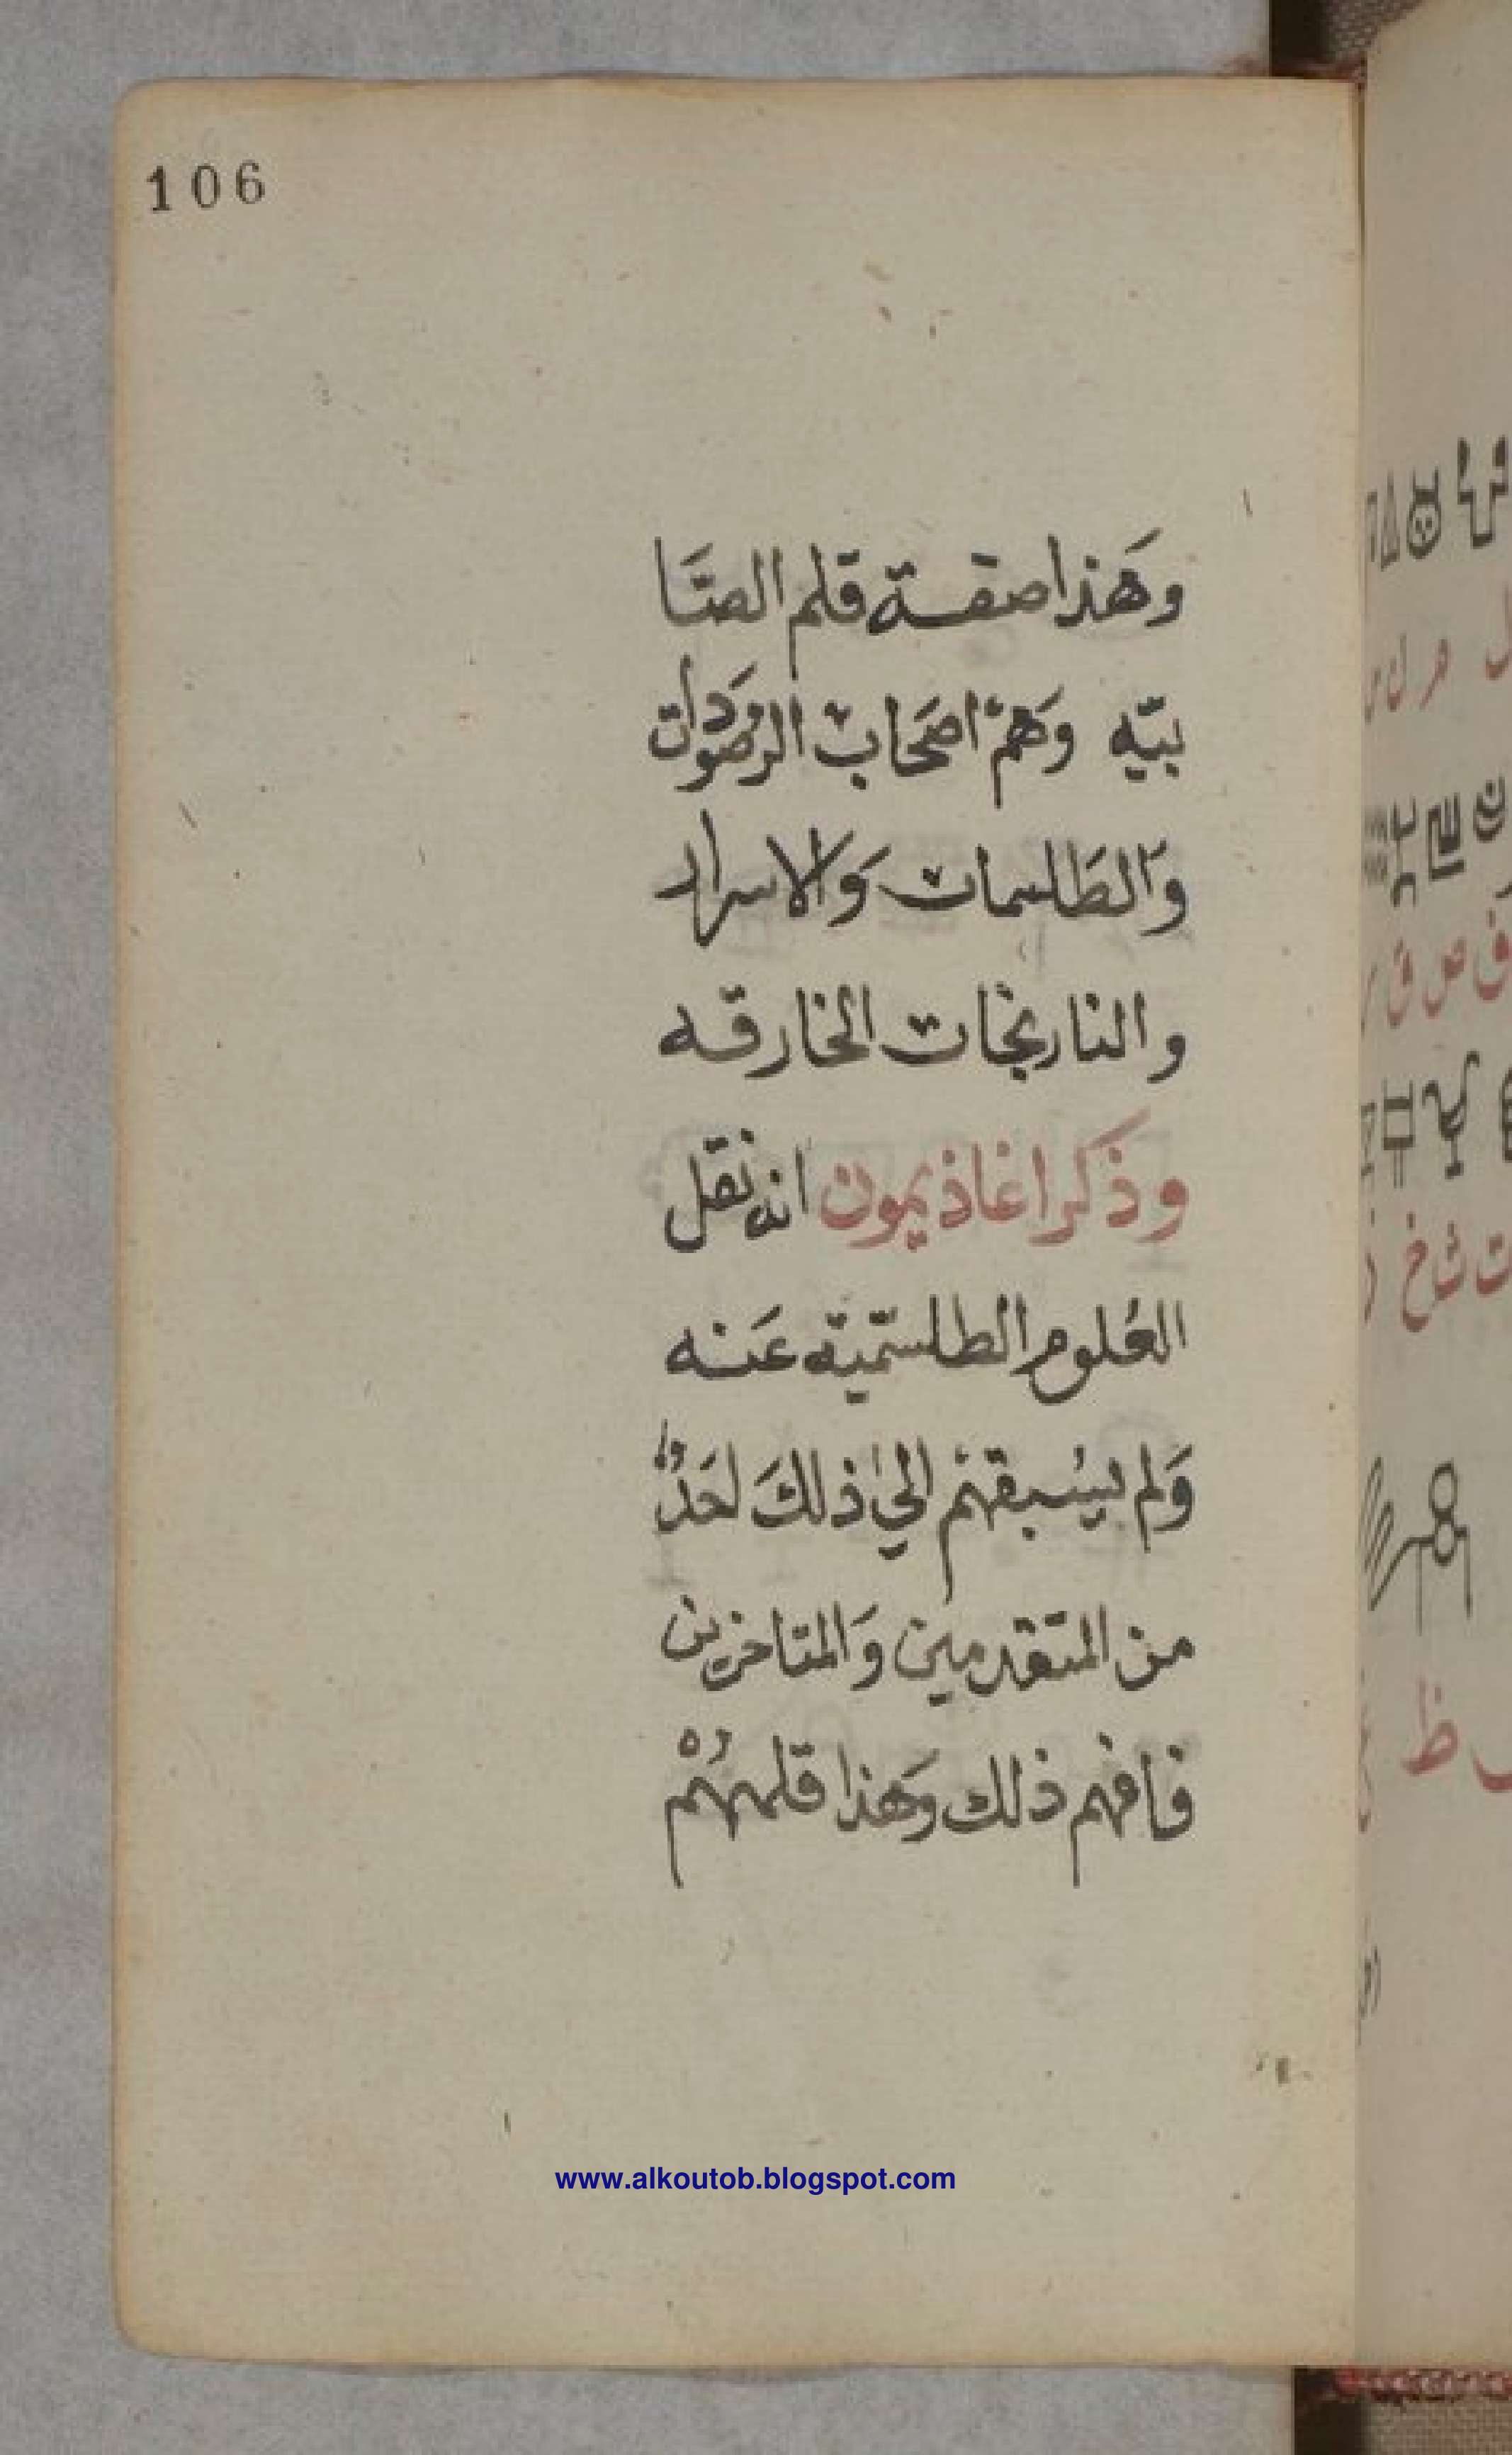 106
وهَذا صفة قلم الصَّا
بيّه وَهمْ اصَحاب الرصودَات
وَالطَلسمات وَالاسرار
والنارنجات الخارقه
وذكر اغاذيمون انه نقل
العُلوم الطلسمّية عَنه
وَلم يسُبقهمْ الى ذلكَ احَدٌ لا
من المتقدمين وَالمتاخرين
فافهم ذلك وَهذا قلمهُمْ
www.alkoutob.blogspot.com